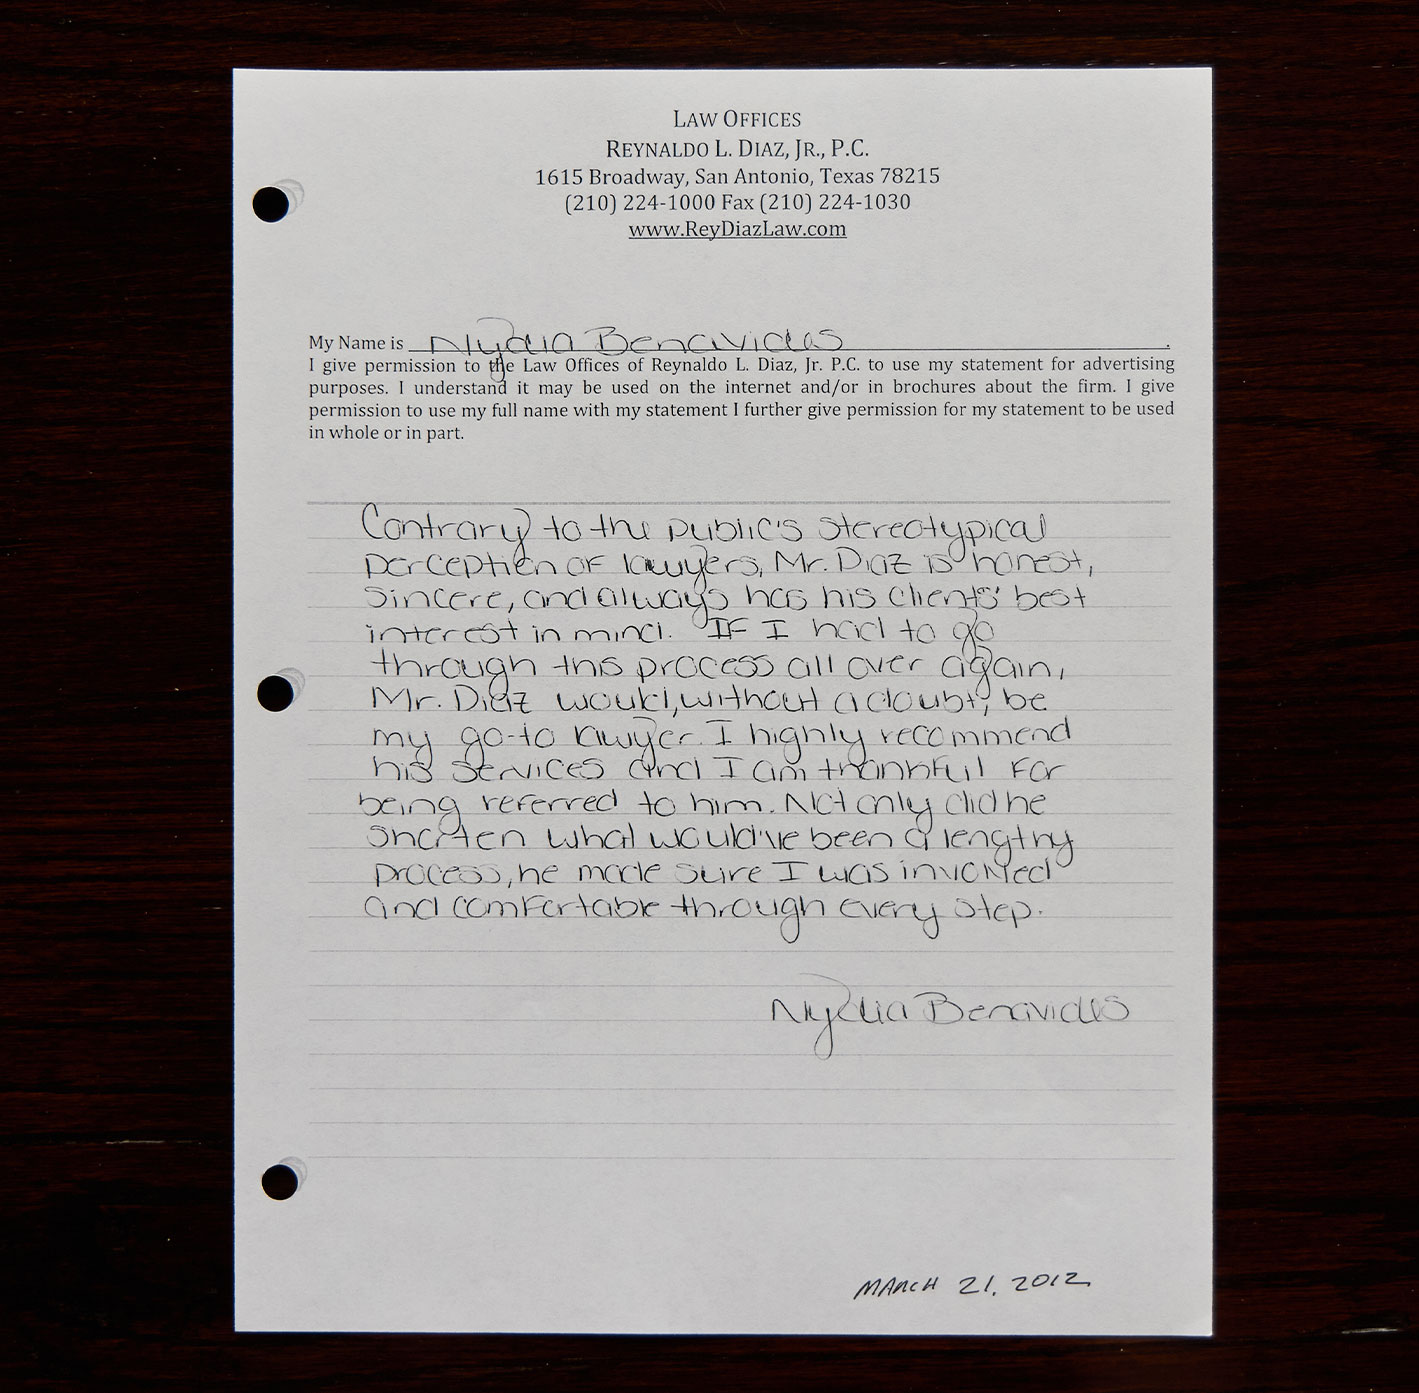 LAW OFFICES
REYNALDO L. DIAZ, JR., P.C.
1615 Broadway, San Antonio, Texas 78215
(210) 224-1000 Fax (210) 224-1030
www.ReyDiazLaw.com
My Name is Nydia Benavides.
I give permission to the Law Offices of Reynaldo L. Diaz, Jr. P.C. to use my statement for advertising
purposes. I understand it may be used on the internet and/or in brochures about the firm. I give
permission to use my full name with my statement I further give permission for my statement to be used
in whole or in part.
Contrary to the public's stereotypical
perception of lawyers, Mr. Diaz is honest,
sincere, and always has his clients' best
interest in mind. If I had to go
through this process all over again,
Mr. Diaz would, without a doubt, be
my go-to lawyer. I highly recommend
his services and I am thankful for
being referred to him. Not only did he
shorten what would've been a lengthy
process, he made sure I was involved
and comfortable through every step.
Nydia Benavides
MARCH 21, 2012